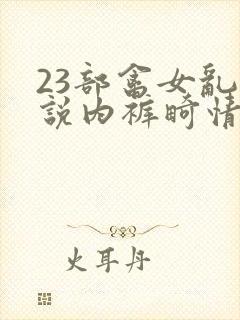 23部畣女亂
說內裤畸情
火耳丹